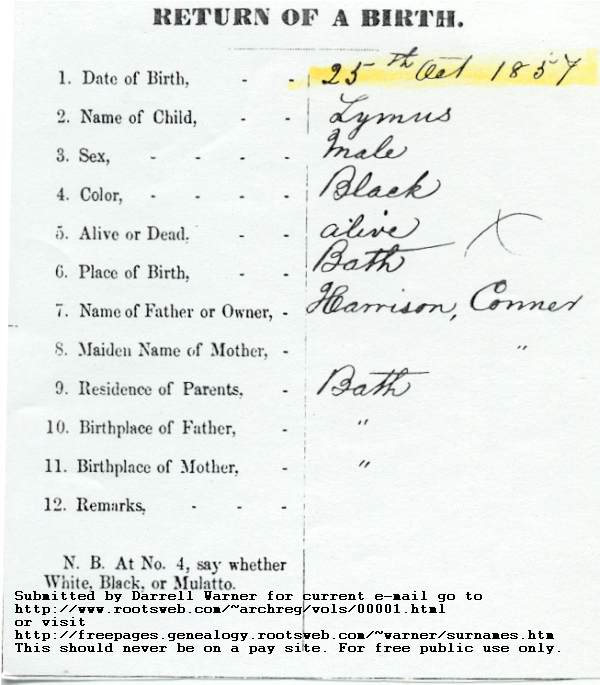 RETURN OF A BIRTH.
1. Date of Birth, - - 25th Oct 1857
2. Name of Child, - - Lymus
3. Sex, - - - - Male
4. Color, - - - - Black
5. Alive or Dead, - - alive X
6. Place of Birth, - - Bath
7. Name of Father or Owner, - Harrison, Conner
8. Maiden Name of Mother, - "
9. Residence of Parents, - Bath
10. Birthplace of Father, - "
11. Birthplace of Mother, - "
12. Remarks, - - -
N. B. At No. 4, say whether
White, Black, or Mulatto.
Submitted by Darrell Warner for current e-mail go to
http://www.rootsweb.com/~archreg/vols/00001.html
or visit
http://freepages.genealogy.rootsweb.com/~warner/surnames.htm
This should never be on a pay site. For free public use only.